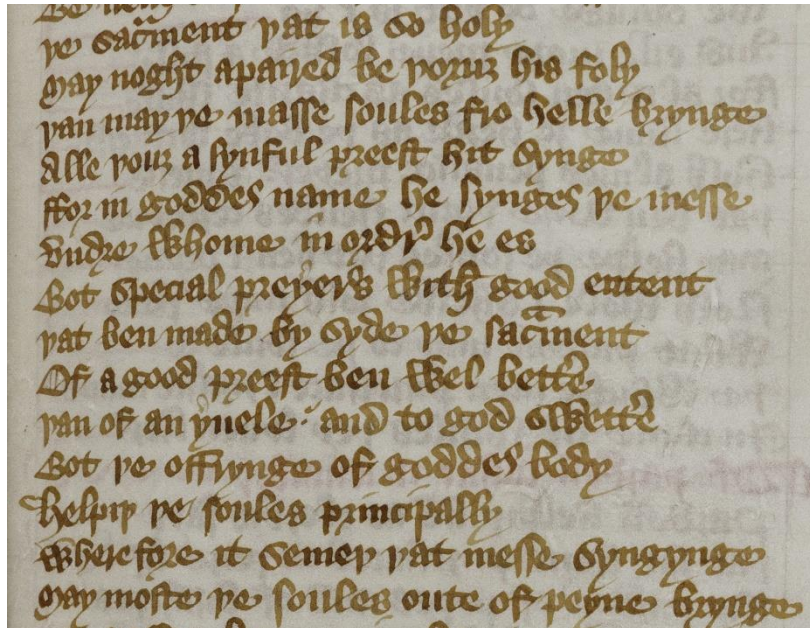 þe sacᵃment þat is so holy
May noght apaired be þoruȝ his foly
þan may þe masse soules fro helle brynge
Alle þouȝ a synful preest hit synge
ffor in goddes name he synges þe messe
vndre whome in ordr' he es
Bot special preyers with good entent
þat ben made by syde þe sacᵃment
Of a good preest ben wel bett'e
þan of an yuele · and to god swett'e
Bot þe offrynge of goddes body
helpiþ þe soules principally
Wherefore it semeþ þat messe syngynge
May moste þe soules oute of peyne brynge